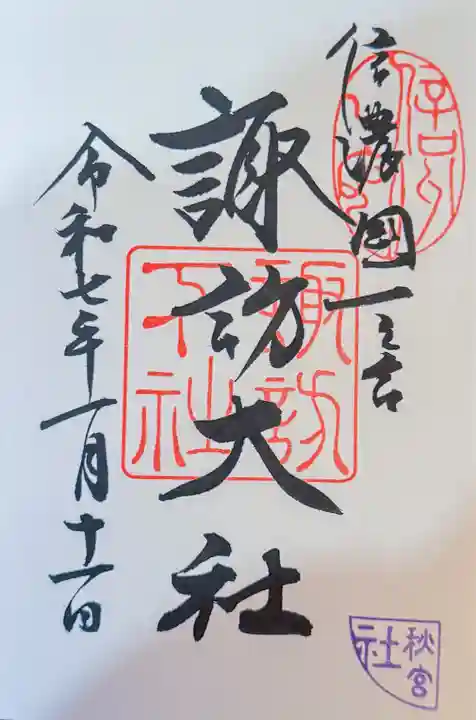 信濃國一之宮
諏訪大社
令和七年一月十一日
諏訪
下社
秋宮
社